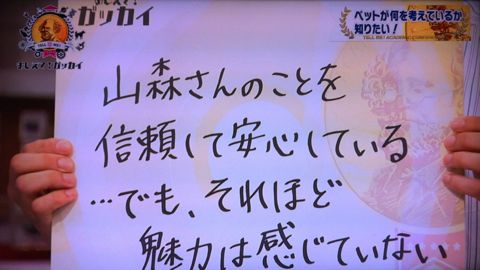 ガッカイ
TELL ME!
おしえて!ガッカイ
ペットが何を考えているか
知りたい!
山森さんのことを
信頼して安心している
…でも、それほど
魅力は感じていない